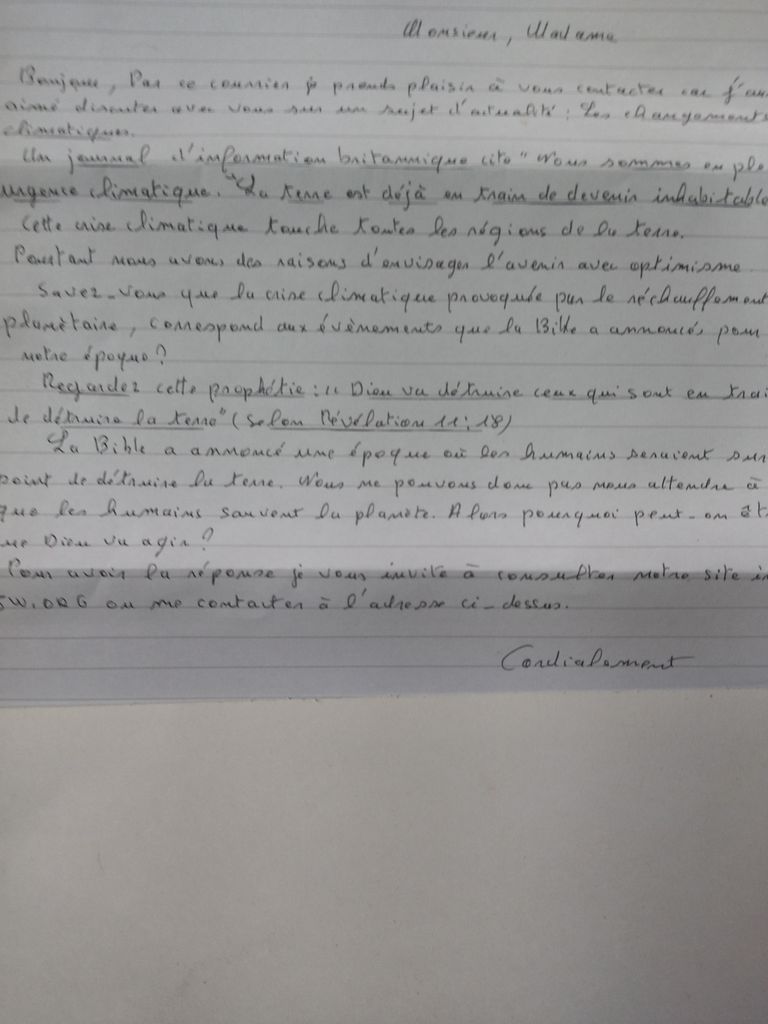 Monsieur, Madame
Bonjour, Par ce courrier je prends plaisir à vous contacter car j'au
aimé discuter avec vous sur un sujet d'actualité : Les changements
climatiques.
Un journal d'information britannique cite "Nous sommes en ple
urgence climatique. "La terre est déjà en train de devenir inhabitable
Cette crise climatique touche toutes les régions de la terre.
Pourtant nous avons des raisons d'envisager l'avenir avec optimisme.
Savez-vous que la crise climatique provoquée par le réchauffement
planètaire, correspond aux évènements que la Bible a annoncés pour
notre époque ?
Regardez cette prophétie : " Dieu va détruire ceux qui sont en trai
de détruire la terre" (selon Révélation 11:18)
La Bible a annoncé une époque où les humains seraient sur
point de détruire la terre. Nous ne pouvons donc pas nous attendre à
que les humains sauvent la planète. Alors pourquoi peut-on êt
ue Dieu va agir ?
Pour avoir la réponse je vous invite à consulter notre site in
JW.ORG ou me contacter à l'adresse ci-dessus.
Cordialement